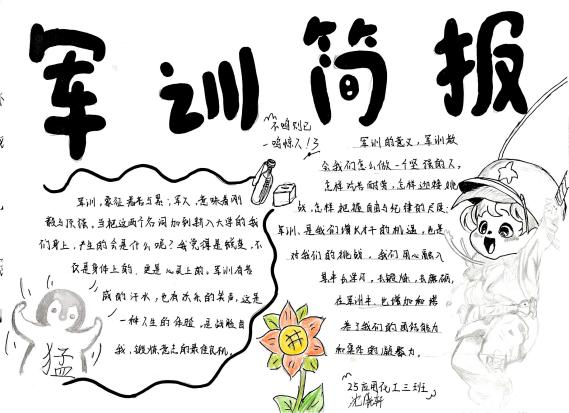 军训简报
不鸣则已
一鸣惊人！
军训，象征着苦与累；军人，意味着刚
毅与顽强。当把这两个名词加到新入大学的我
们身上，产生的会是什么呢？我觉得是蜕变，不
仅是身体上的，更是心灵上的。军训有苦
咸的汗水，也有欢乐的笑声，这是
一种人生的体验，是战胜自
我，锻炼意志的最佳良机。
猛
军训的意义，军训教
会我们怎么做一个坚强的人，
怎样吃苦耐劳，怎样迎接挑
战，怎样把握自由与纪律的尺度。
军训，是我们增长才干的机遇，也是
对我们的挑战，我们用心融入
其中去学习，去锻炼，去磨砺，
在军训中也增加和培
养了我们的团结能力
和集体的凝聚力。
25应用化工三班